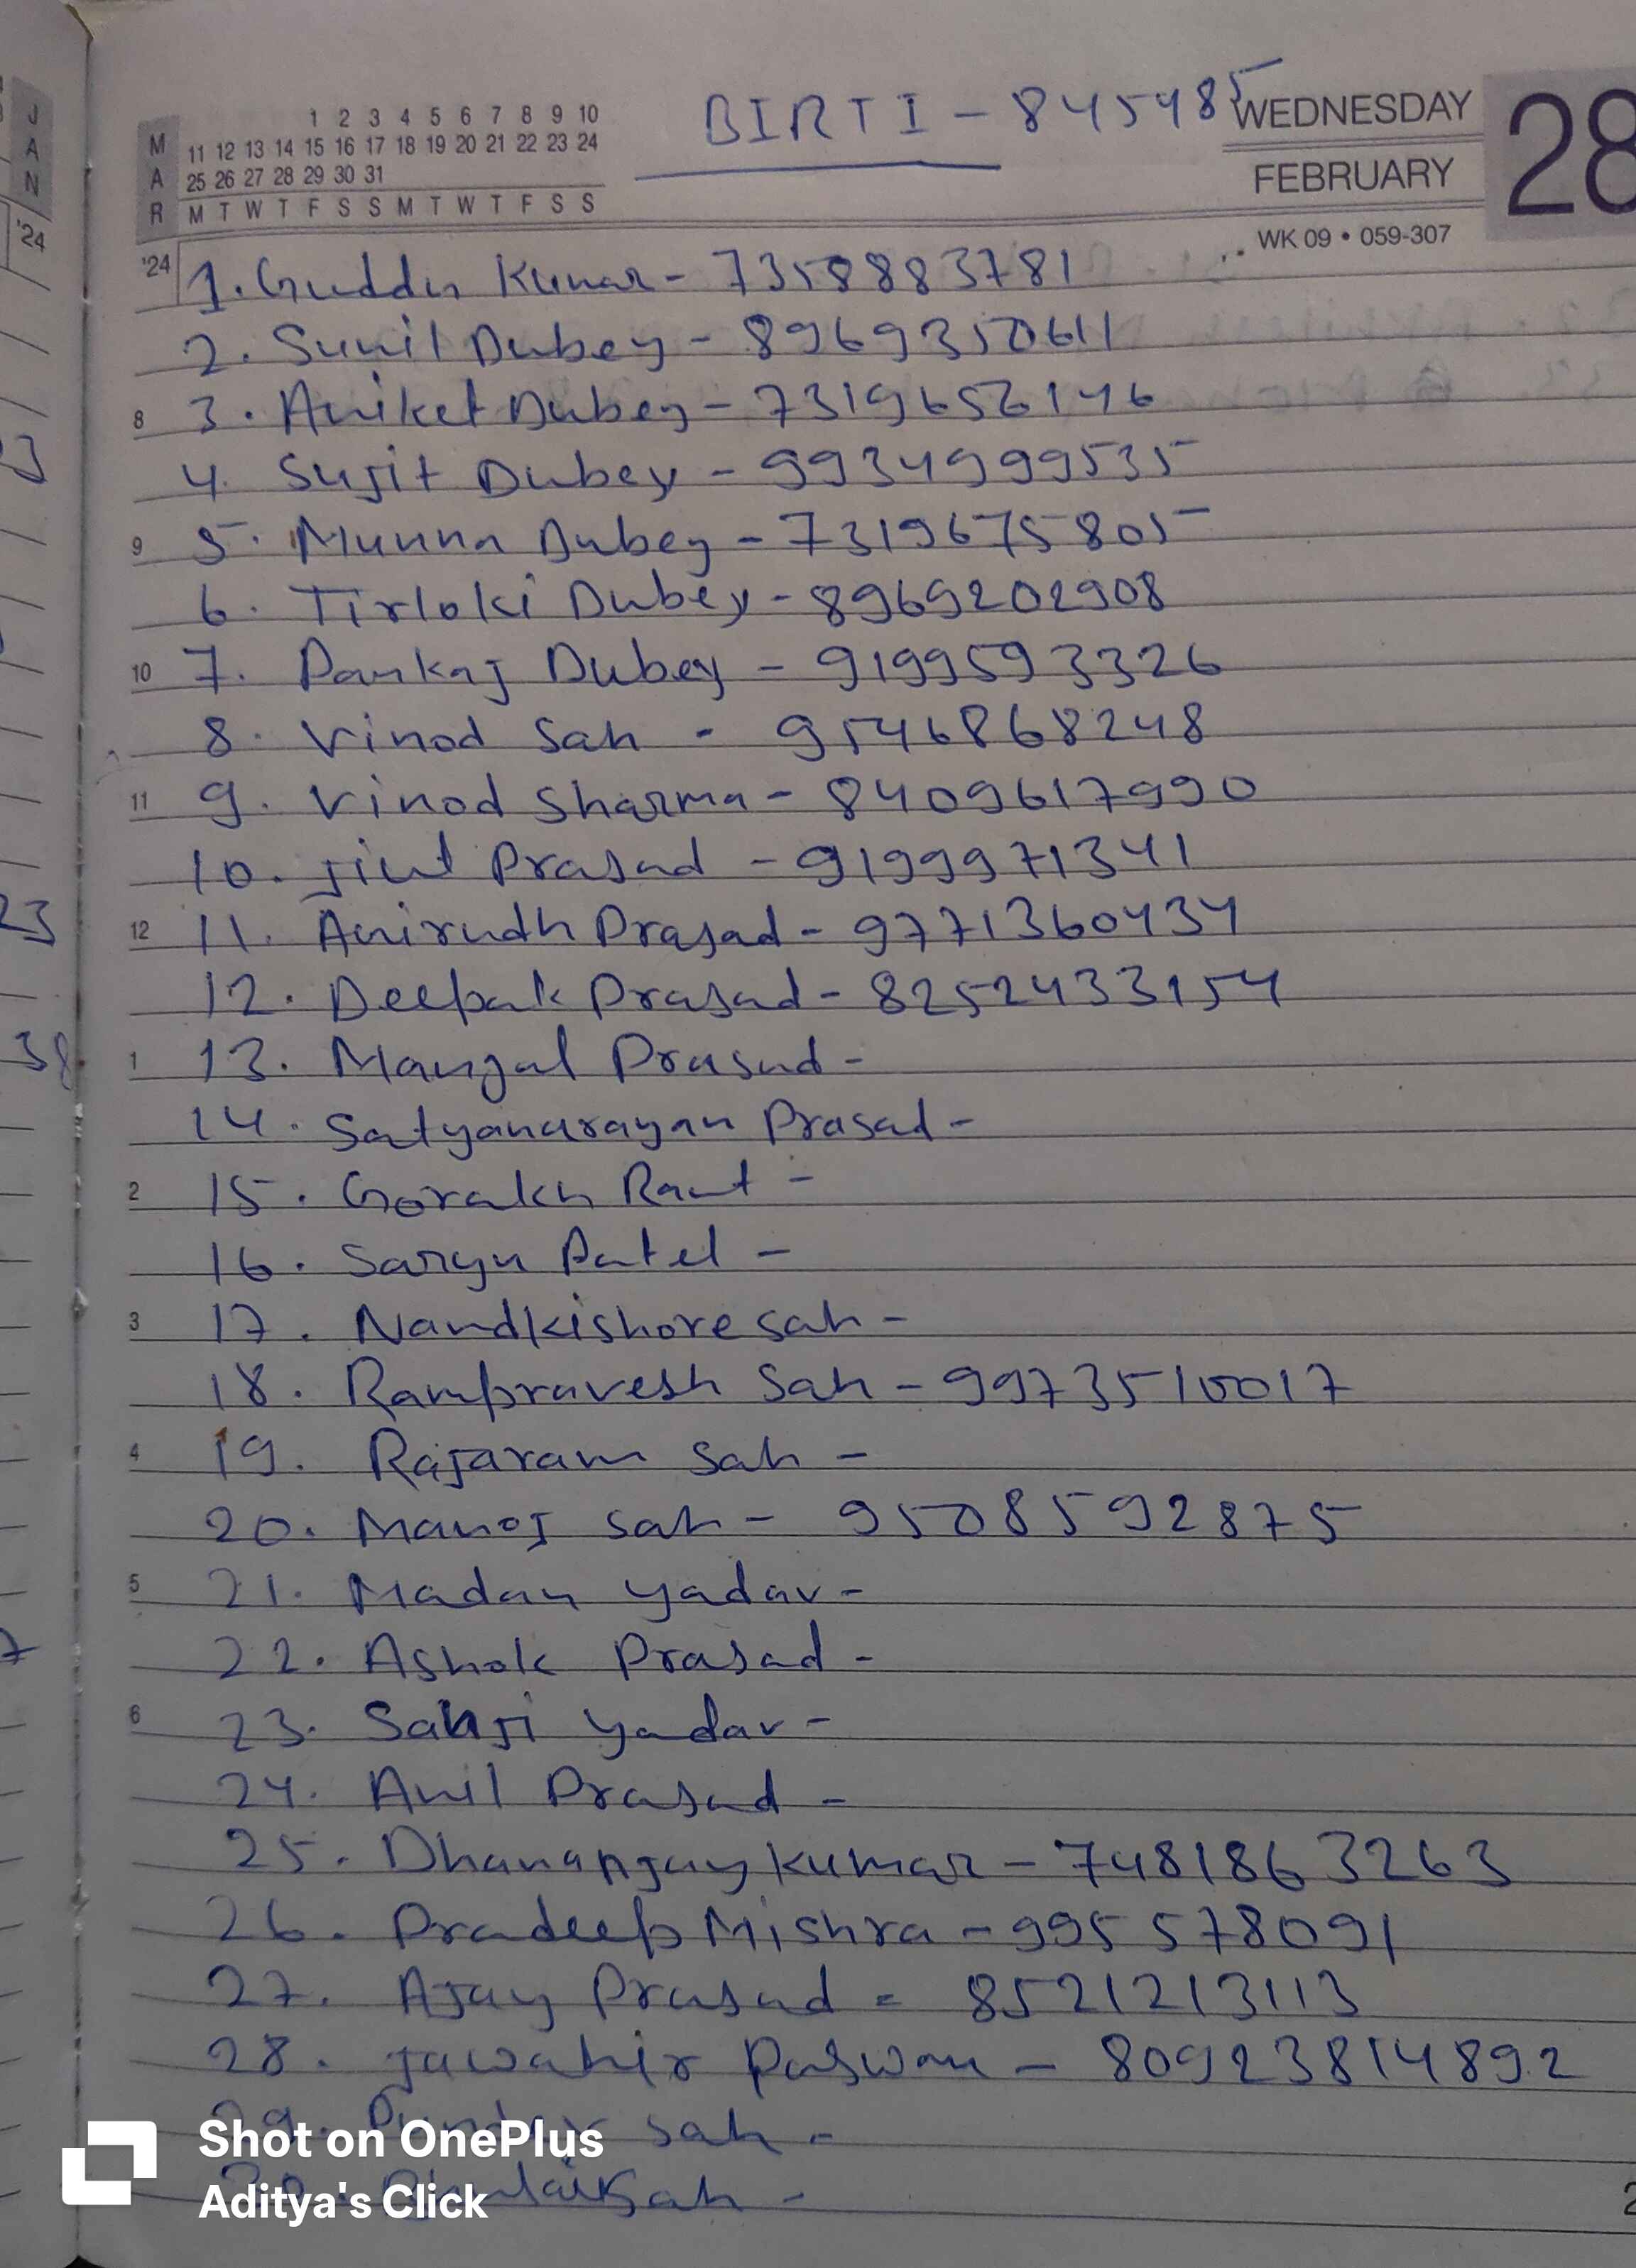 BIRTI - 845485
1 2 3 4 5 6 7 8 9 10
11 12 13 14 15 16 17 18 19 20 21 22 23 24
25 26 27 28 29 30 31
M T W T F S S M T W T F S S
MAR '24
JAN '24
WEDNESDAY
FEBRUARY
28
WK 09 • 059-307
1. Guddu Kumar - 7358883781
2. Sunil Dubey - 8969350611
3. Aniket Dubey - 7319656146
4. Sujit Dubey - 9934999535
5. Munna Dubey - 7319675805
6. Tirloki Dubey - 8969202908
7. Pankaj Dubey - 9199593326
8. Vinod Sah - 9546868248
9. Vinod Sharma - 8409617990
10. Prasad - 9199971341
11. Anirudh Prasad - 9771360434
12. Deepak Prasad - 8252433154
13. Mangal Prasad -
14. Satyanarayan Prasad -
15. Gorakh Raut -
16. Saryu Patel -
17. Nandkishore sah -
18. Rampravesh Sah - 9973510017
19. Rajaram Sah -
20. Manoj sah - 9508592875
21. Madan yadav -
22. Ashok Prasad -
23. Sahji yadav -
24. Anil Prasad -
25. Dhananjay kumar - 7481863263
26. Pradeep Mishra - 995578091
27. Ajay Prasad - 8521213113
28. Jawahir Paswan - 80923814892
29. sah -
30. Sah -
8
9
10
11
12
1
2
3
4
5
6
Shot on OnePlus
Aditya's Click